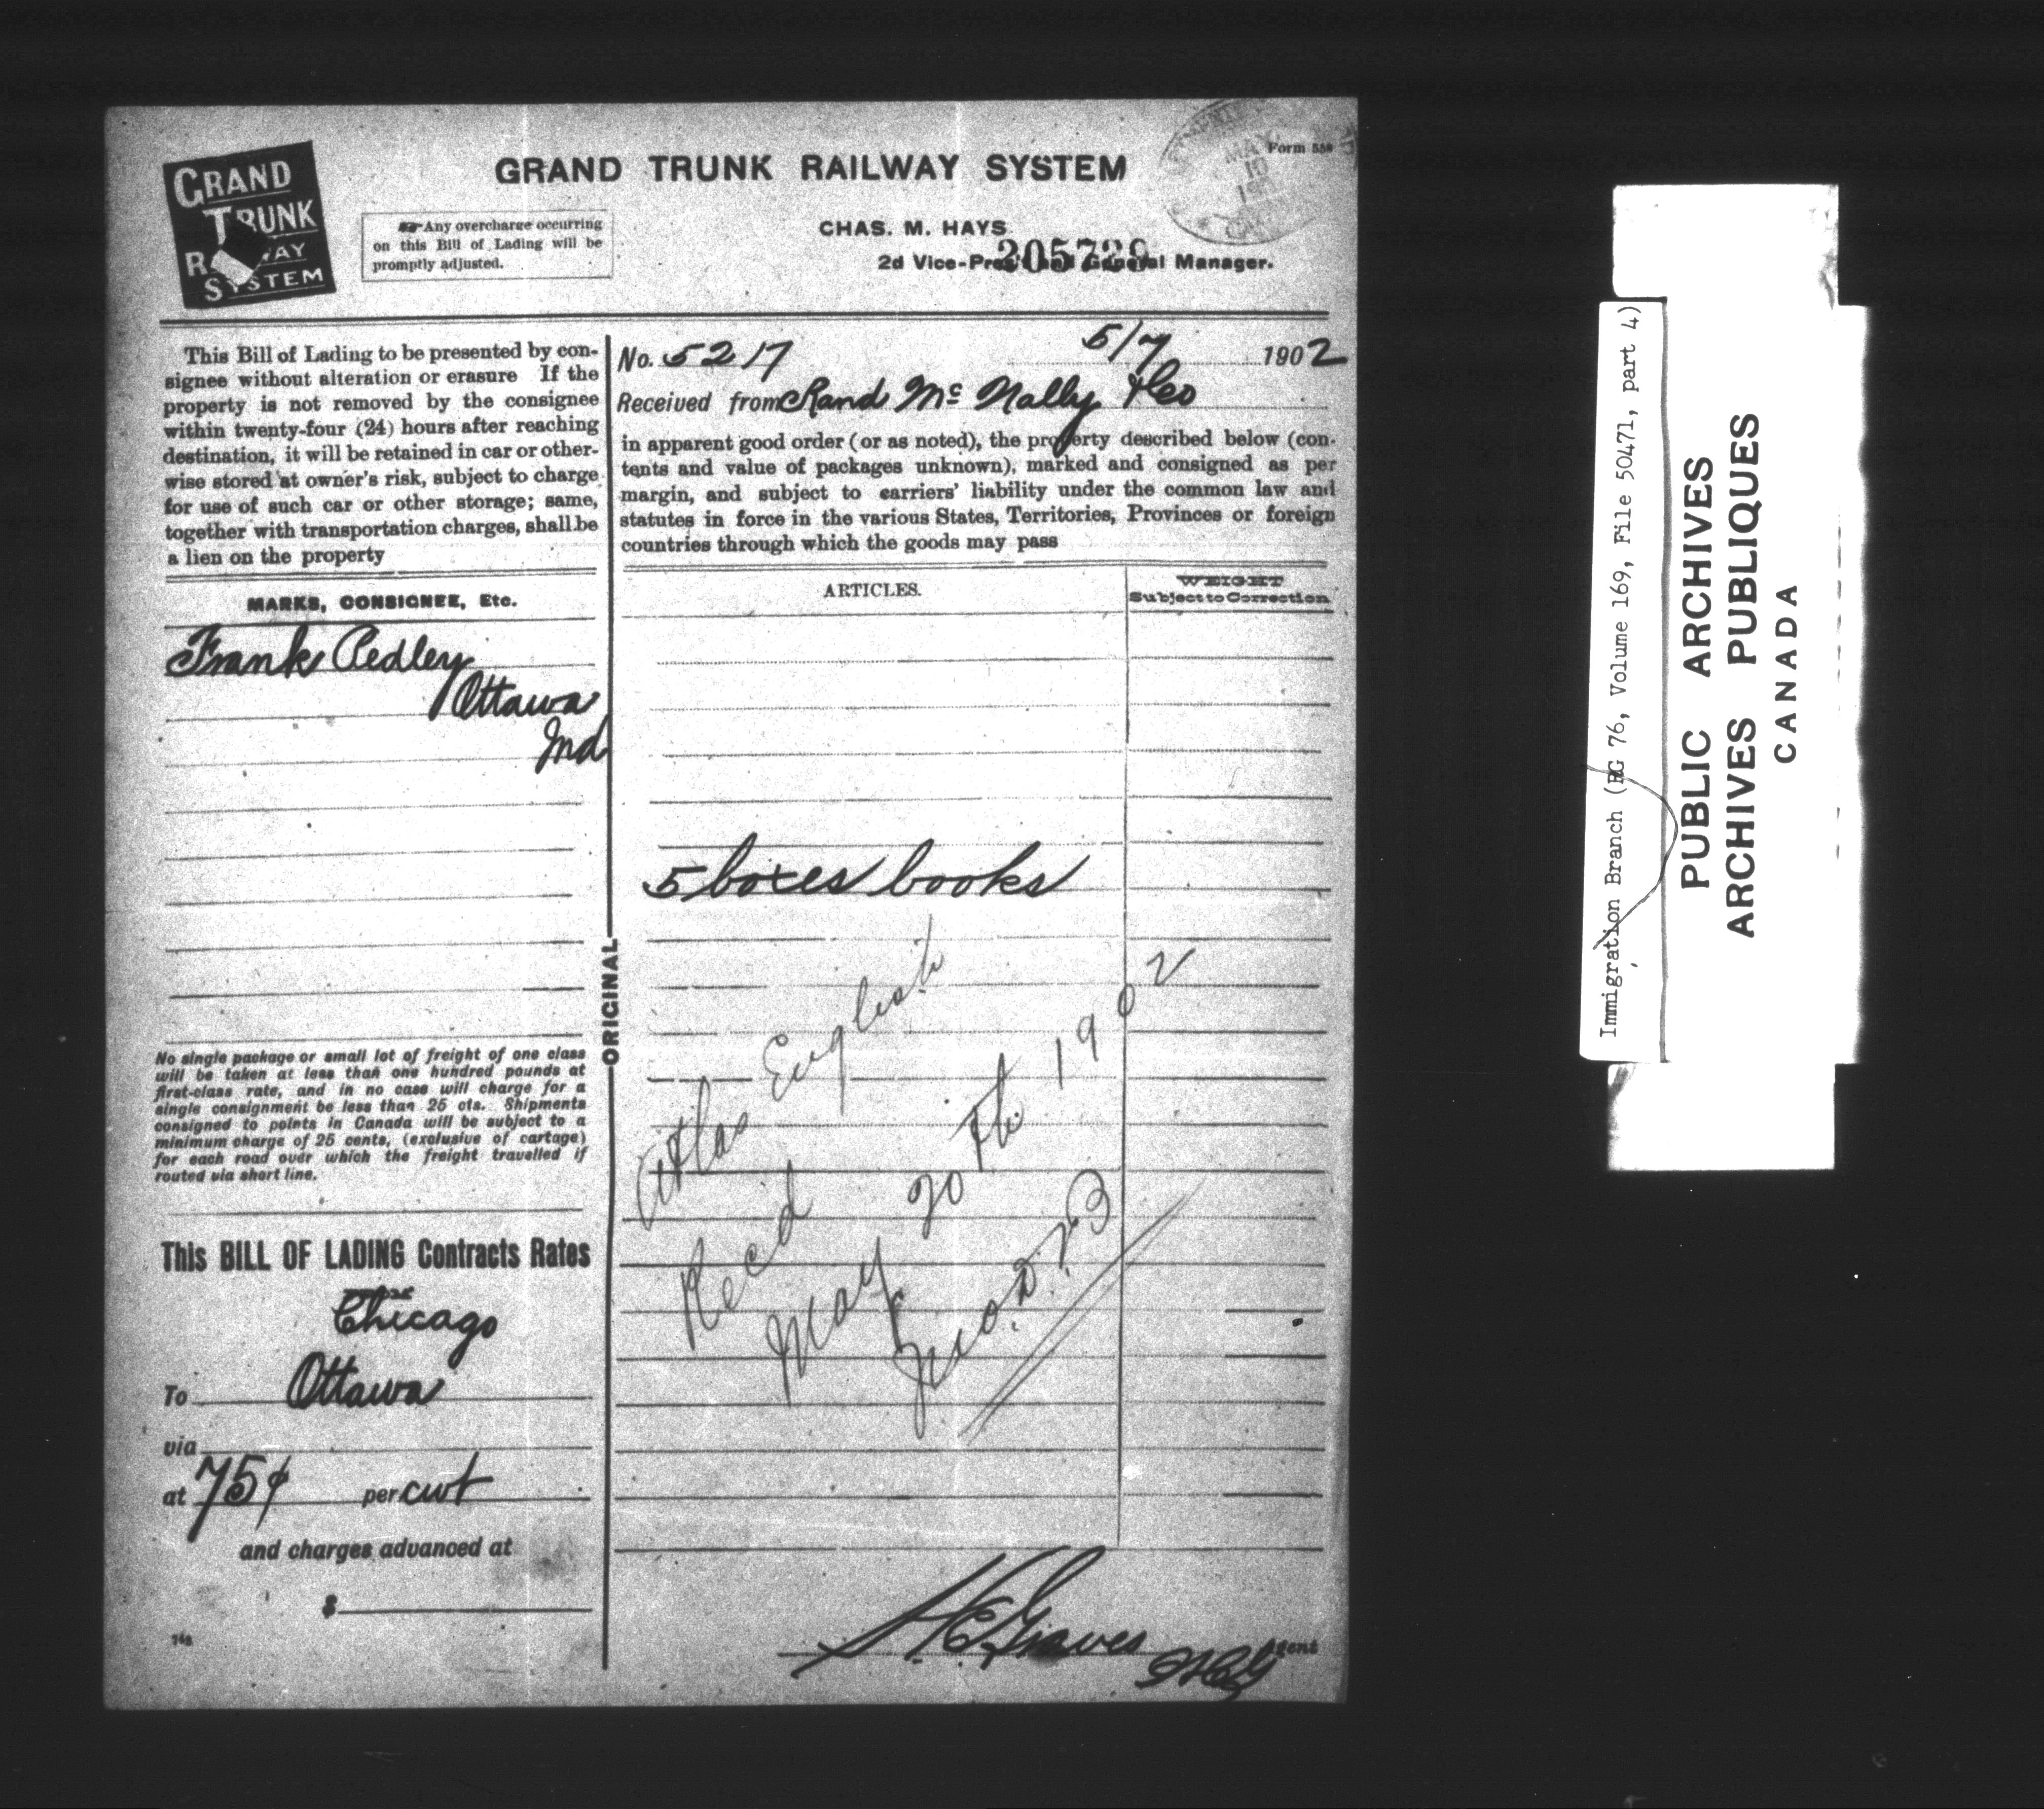 GRAND
TRUNK
RAILWAY
SYSTEM
GRAND TRUNK RAILWAY SYSTEM
Form 558
MAY
10
Any overcharge occurring
on this Bill of Lading will be
promptly adjusted.
CHAS. M. HAYS
2d Vice-Pres't and General Manager.
205729
This Bill of Lading to be presented by con-
signee without alteration or erasure If the
property is not removed by the consignee
within twenty-four (24) hours after reaching
destination, it will be retained in car or other-
wise stored at owner's risk, subject to charge
for use of such car or other storage; same,
together with transportation charges, shall be
a lien on the property
MARKS, CONSIGNEE, Etc.
Frank Pedley
Ottawa
Ind
No single package or small lot of freight of one class
will be taken at less than one hundred pounds at
first-class rate, and in no case will charge for a
single consignment be less than 25 cts. Shipments
consigned to points in Canada will be subject to a
minimum charge of 25 cents, (exclusive of cartage)
for each road over which the freight travelled if
routed via short line.
This BILL OF LADING Contracts Rates
Chicago
To Ottawa
via
at 75¢ per cwt
and charges advanced at
$
ORIGINAL
No. 5217 5/7 1902
Received from Rand Mc Nally & Co
in apparent good order (or as noted), the property described below (con-
tents and value of packages unknown), marked and consigned as per
margin, and subject to carriers' liability under the common law and
statutes in force in the various States, Territories, Provinces or foreign
countries through which the goods may pass
ARTICLES.
WEIGHT
Subject to Correction
5 boxes books
Atlas English
Recd
May 20th 1902
Jno. D. B
H C Graves
Agent
Immigration Branch (RG 76, Volume 169, File 50471, part 4)
PUBLIC ARCHIVES
ARCHIVES PUBLIQUES
CANADA